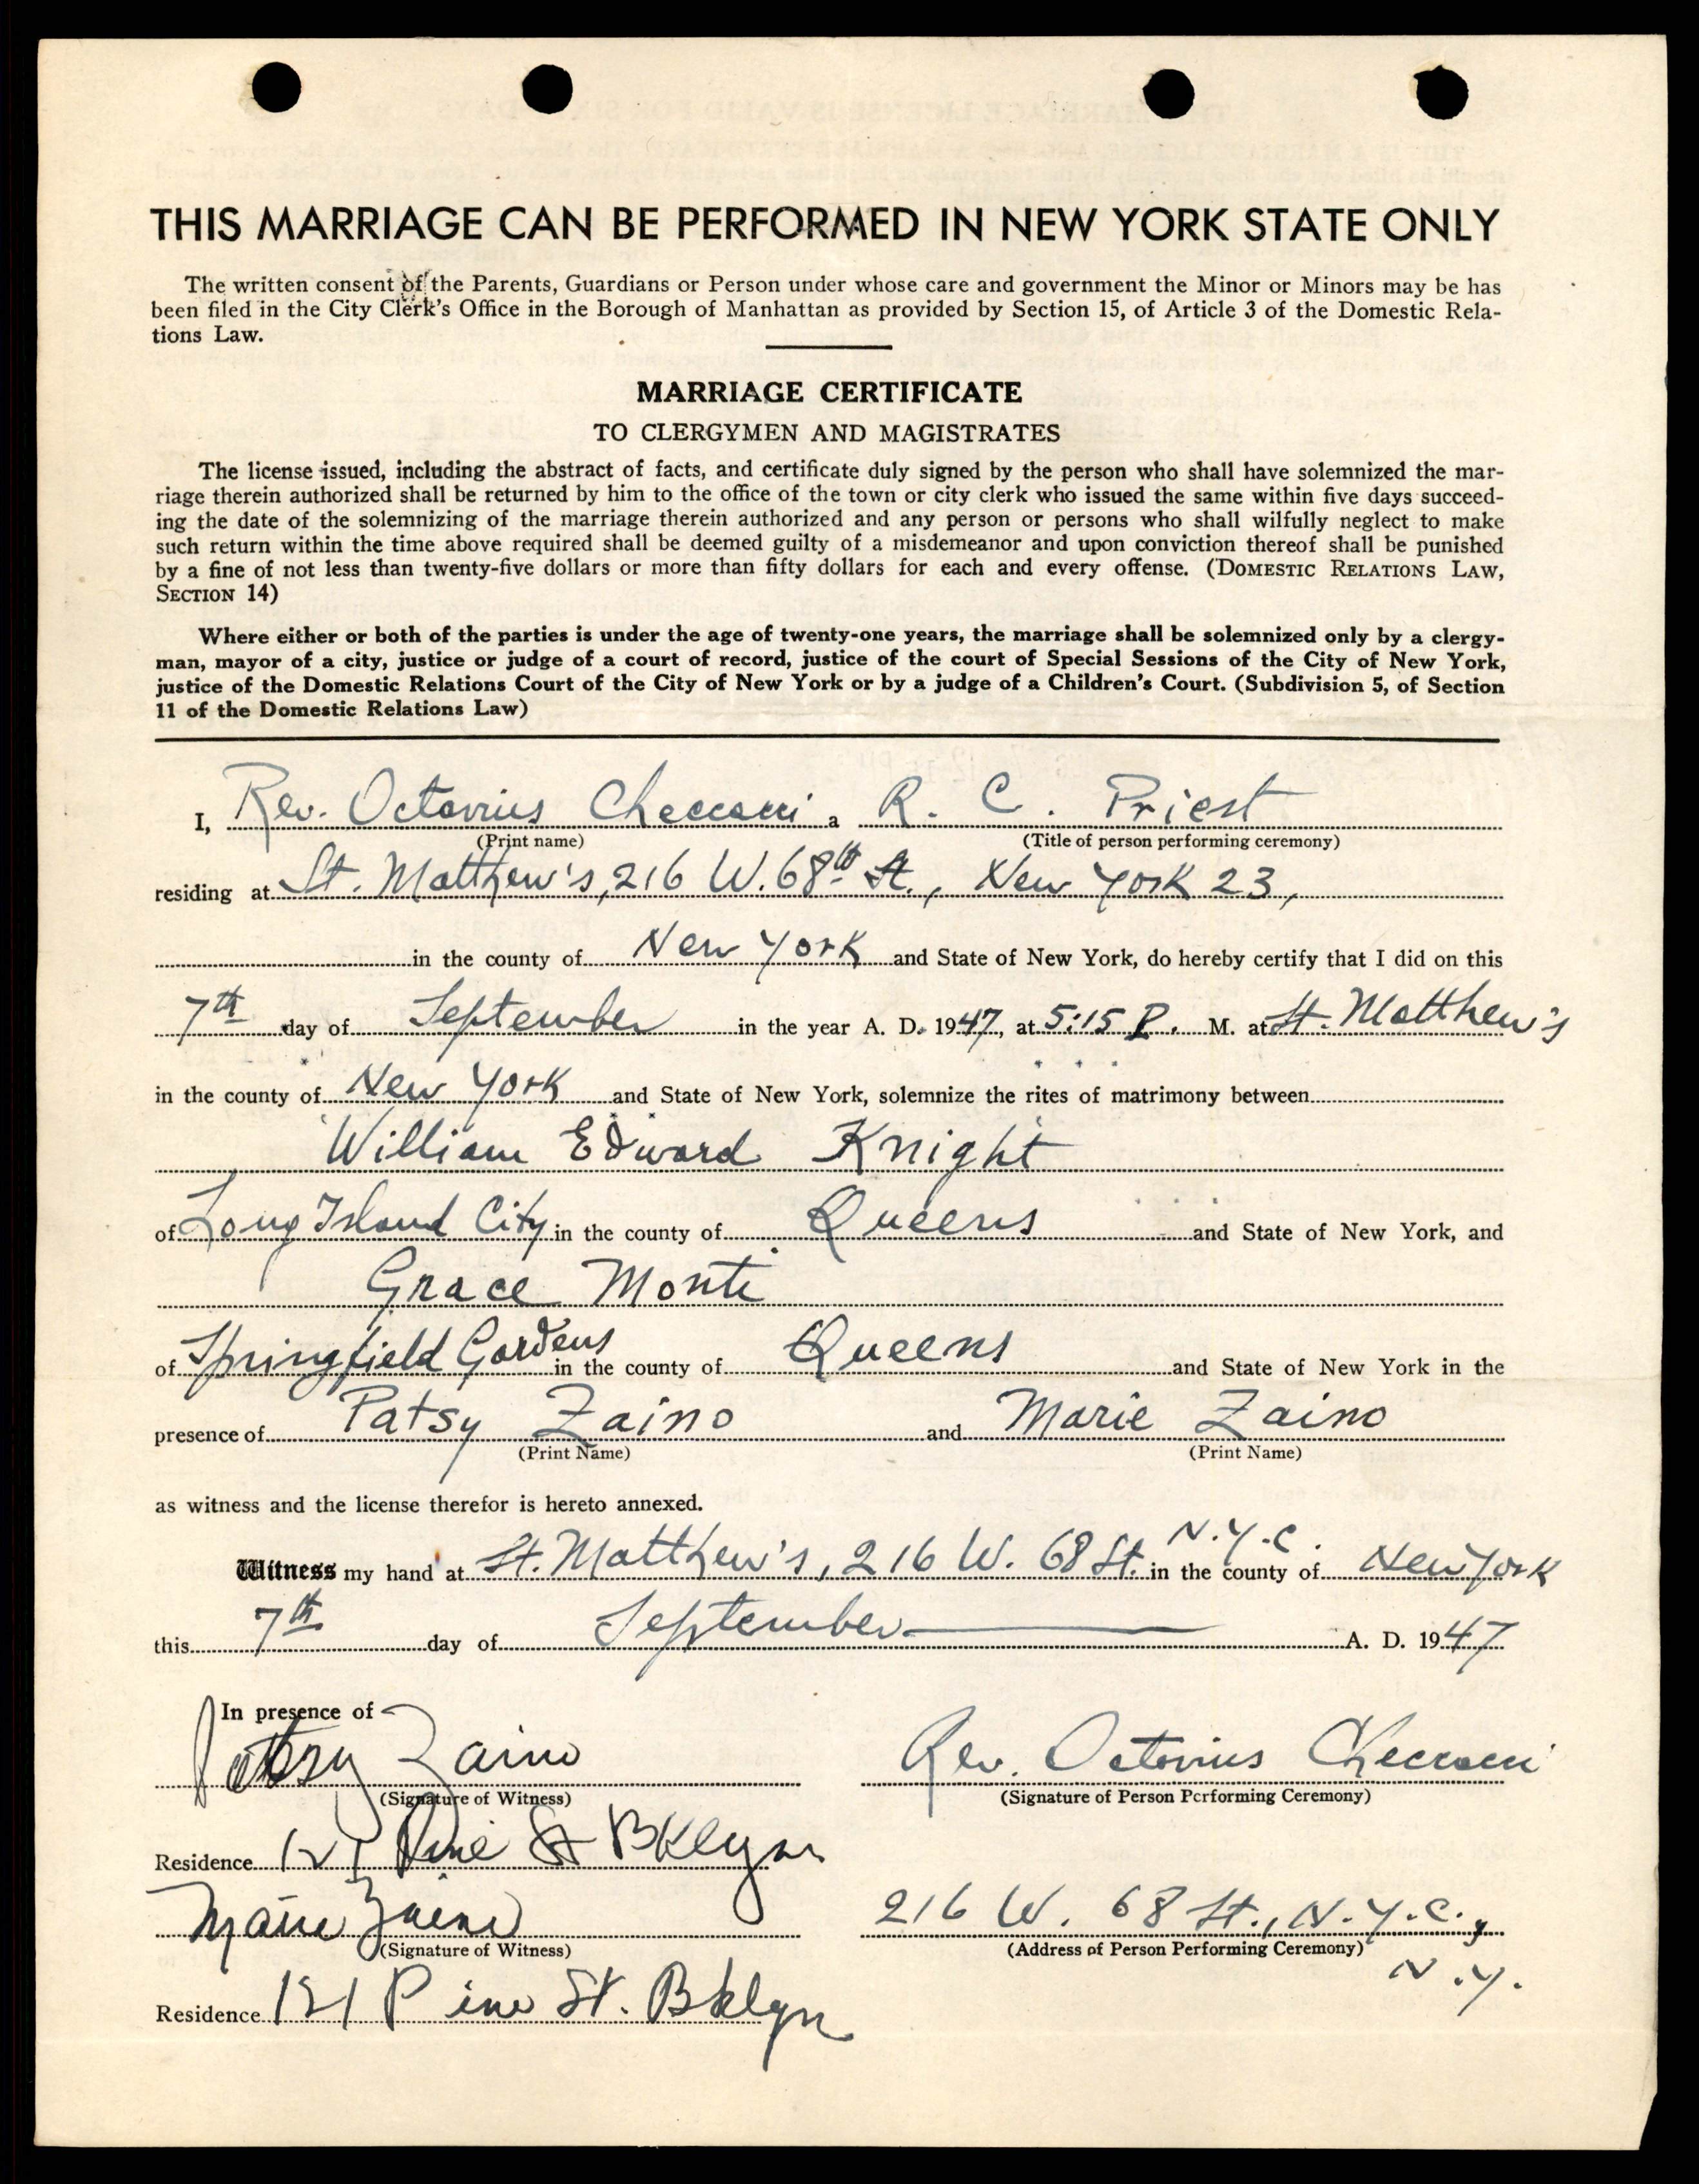 THIS MARRIAGE CAN BE PERFORMED IN NEW YORK STATE ONLY
The written consent of the Parents, Guardians or Person under whose care and government the Minor or Minors may be has
been filed in the City Clerk's Office in the Borough of Manhattan as provided by Section 15, of Article 3 of the Domestic Rela-
tions Law.
MARRIAGE CERTIFICATE
TO CLERGYMEN AND MAGISTRATES
The license issued, including the abstract of facts, and certificate duly signed by the person who shall have solemnized the mar-
riage therein authorized shall be returned by him to the office of the town or city clerk who issued the same within five days succeed-
ing the date of the solemnizing of the marriage therein authorized and any person or persons who shall wilfully neglect to make
such return within the time above required shall be deemed guilty of a misdemeanor and upon conviction thereof shall be punished
by a fine of not less than twenty-five dollars or more than fifty dollars for each and every offense. (DOMESTIC RELATIONS LAW,
SECTION 14)
Where either or both of the parties is under the age of twenty-one years, the marriage shall be solemnized only by a clergy-
man, mayor of a city, justice or judge of a court of record, justice of the court of Special Sessions of the City of New York,
justice of the Domestic Relations Court of the City of New York or by a judge of a Children's Court. (Subdivision 5, of Section
11 of the Domestic Relations Law)
I, Rev. Octavius a R. C. Priest
(Print name) (Title of person performing ceremony)
residing at St. Matthew's, 216 W. 68th St., New York 23,
in the county of New York and State of New York, do hereby certify that I did on this
7th day of September in the year A. D. 1947, at 5:15 P. M. at St. Matthew's
in the county of New York and State of New York, solemnize the rites of matrimony between
William Edward Knight
of Long Island City in the county of Queens and State of New York, and
Grace Monti
of Springfield Gardens in the county of Queens and State of New York in the
presence of Patsy Zaino and Marie Zaino
(Print Name) (Print Name)
as witness and the license therefor is hereto annexed.
Witness my hand at St. Matthew's, 216 W. 68 St. N.Y.C. in the county of New York
this 7th day of September A. D. 1947
In presence of
Patsy Zaino Rev. Octavius
(Signature of Witness) (Signature of Person Performing Ceremony)
Residence 121 Pine St Bklyn
Marie Zaino 216 W. 68 St., N.Y.C.,
(Signature of Witness) (Address of Person Performing Ceremony)
N.Y.
Residence 121 Pine St. Bklyn